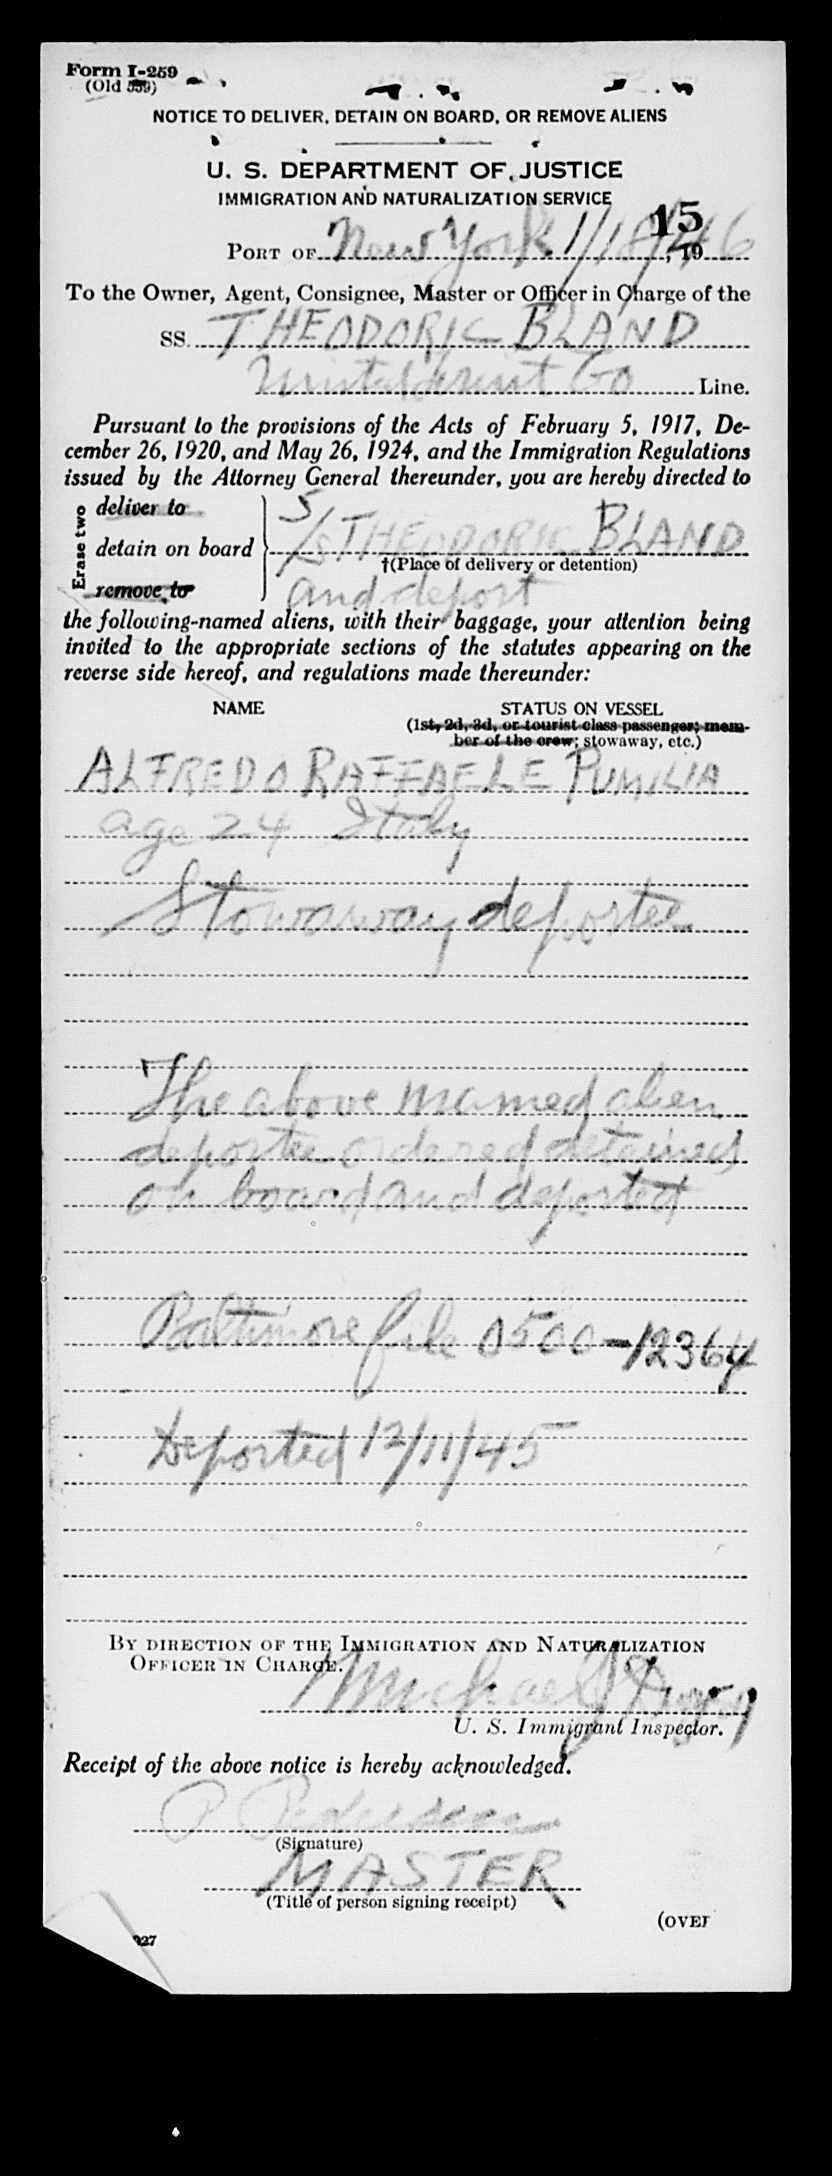 Form I-259
(Old 559)
NOTICE TO DELIVER, DETAIN ON BOARD, OR REMOVE ALIENS
U. S. DEPARTMENT OF JUSTICE
IMMIGRATION AND NATURALIZATION SERVICE
15
PORT OF New York 1/18/46, 19
To the Owner, Agent, Consignee, Master or Officer in Charge of the
SS. THEODORIC BLAND
United Fruit Co Line.
Pursuant to the provisions of the Acts of February 5, 1917, De-
cember 26, 1920, and May 26, 1924, and the Immigration Regulations
issued by the Attorney General thereunder, you are hereby directed to
Erase two
deliver to
detain on board
remove to
S/S THEODORIC BLAND
†(Place of delivery or detention)
and deport
the following-named aliens, with their baggage, your attention being
invited to the appropriate sections of the statutes appearing on the
reverse side hereof, and regulations made thereunder:
NAME STATUS ON VESSEL
(1st, 2d, 3d, or tourist class passenger; mem-
ber of the crew; stowaway, etc.)
ALFREDO RAFFAELE PUMILIA
age 24 Italy
Stowaway deportee
The above named alien
deportee ordered detained
on board and deported
Baltimore file 0500-12364
Deported 12/11/45
BY DIRECTION OF THE IMMIGRATION AND NATURALIZATION
OFFICER IN CHARGE.
Michael J
U. S. Immigrant Inspector.
Receipt of the above notice is hereby acknowledged.
P Pedersen
(Signature)
MASTER
(Title of person signing receipt)
(OVER
927